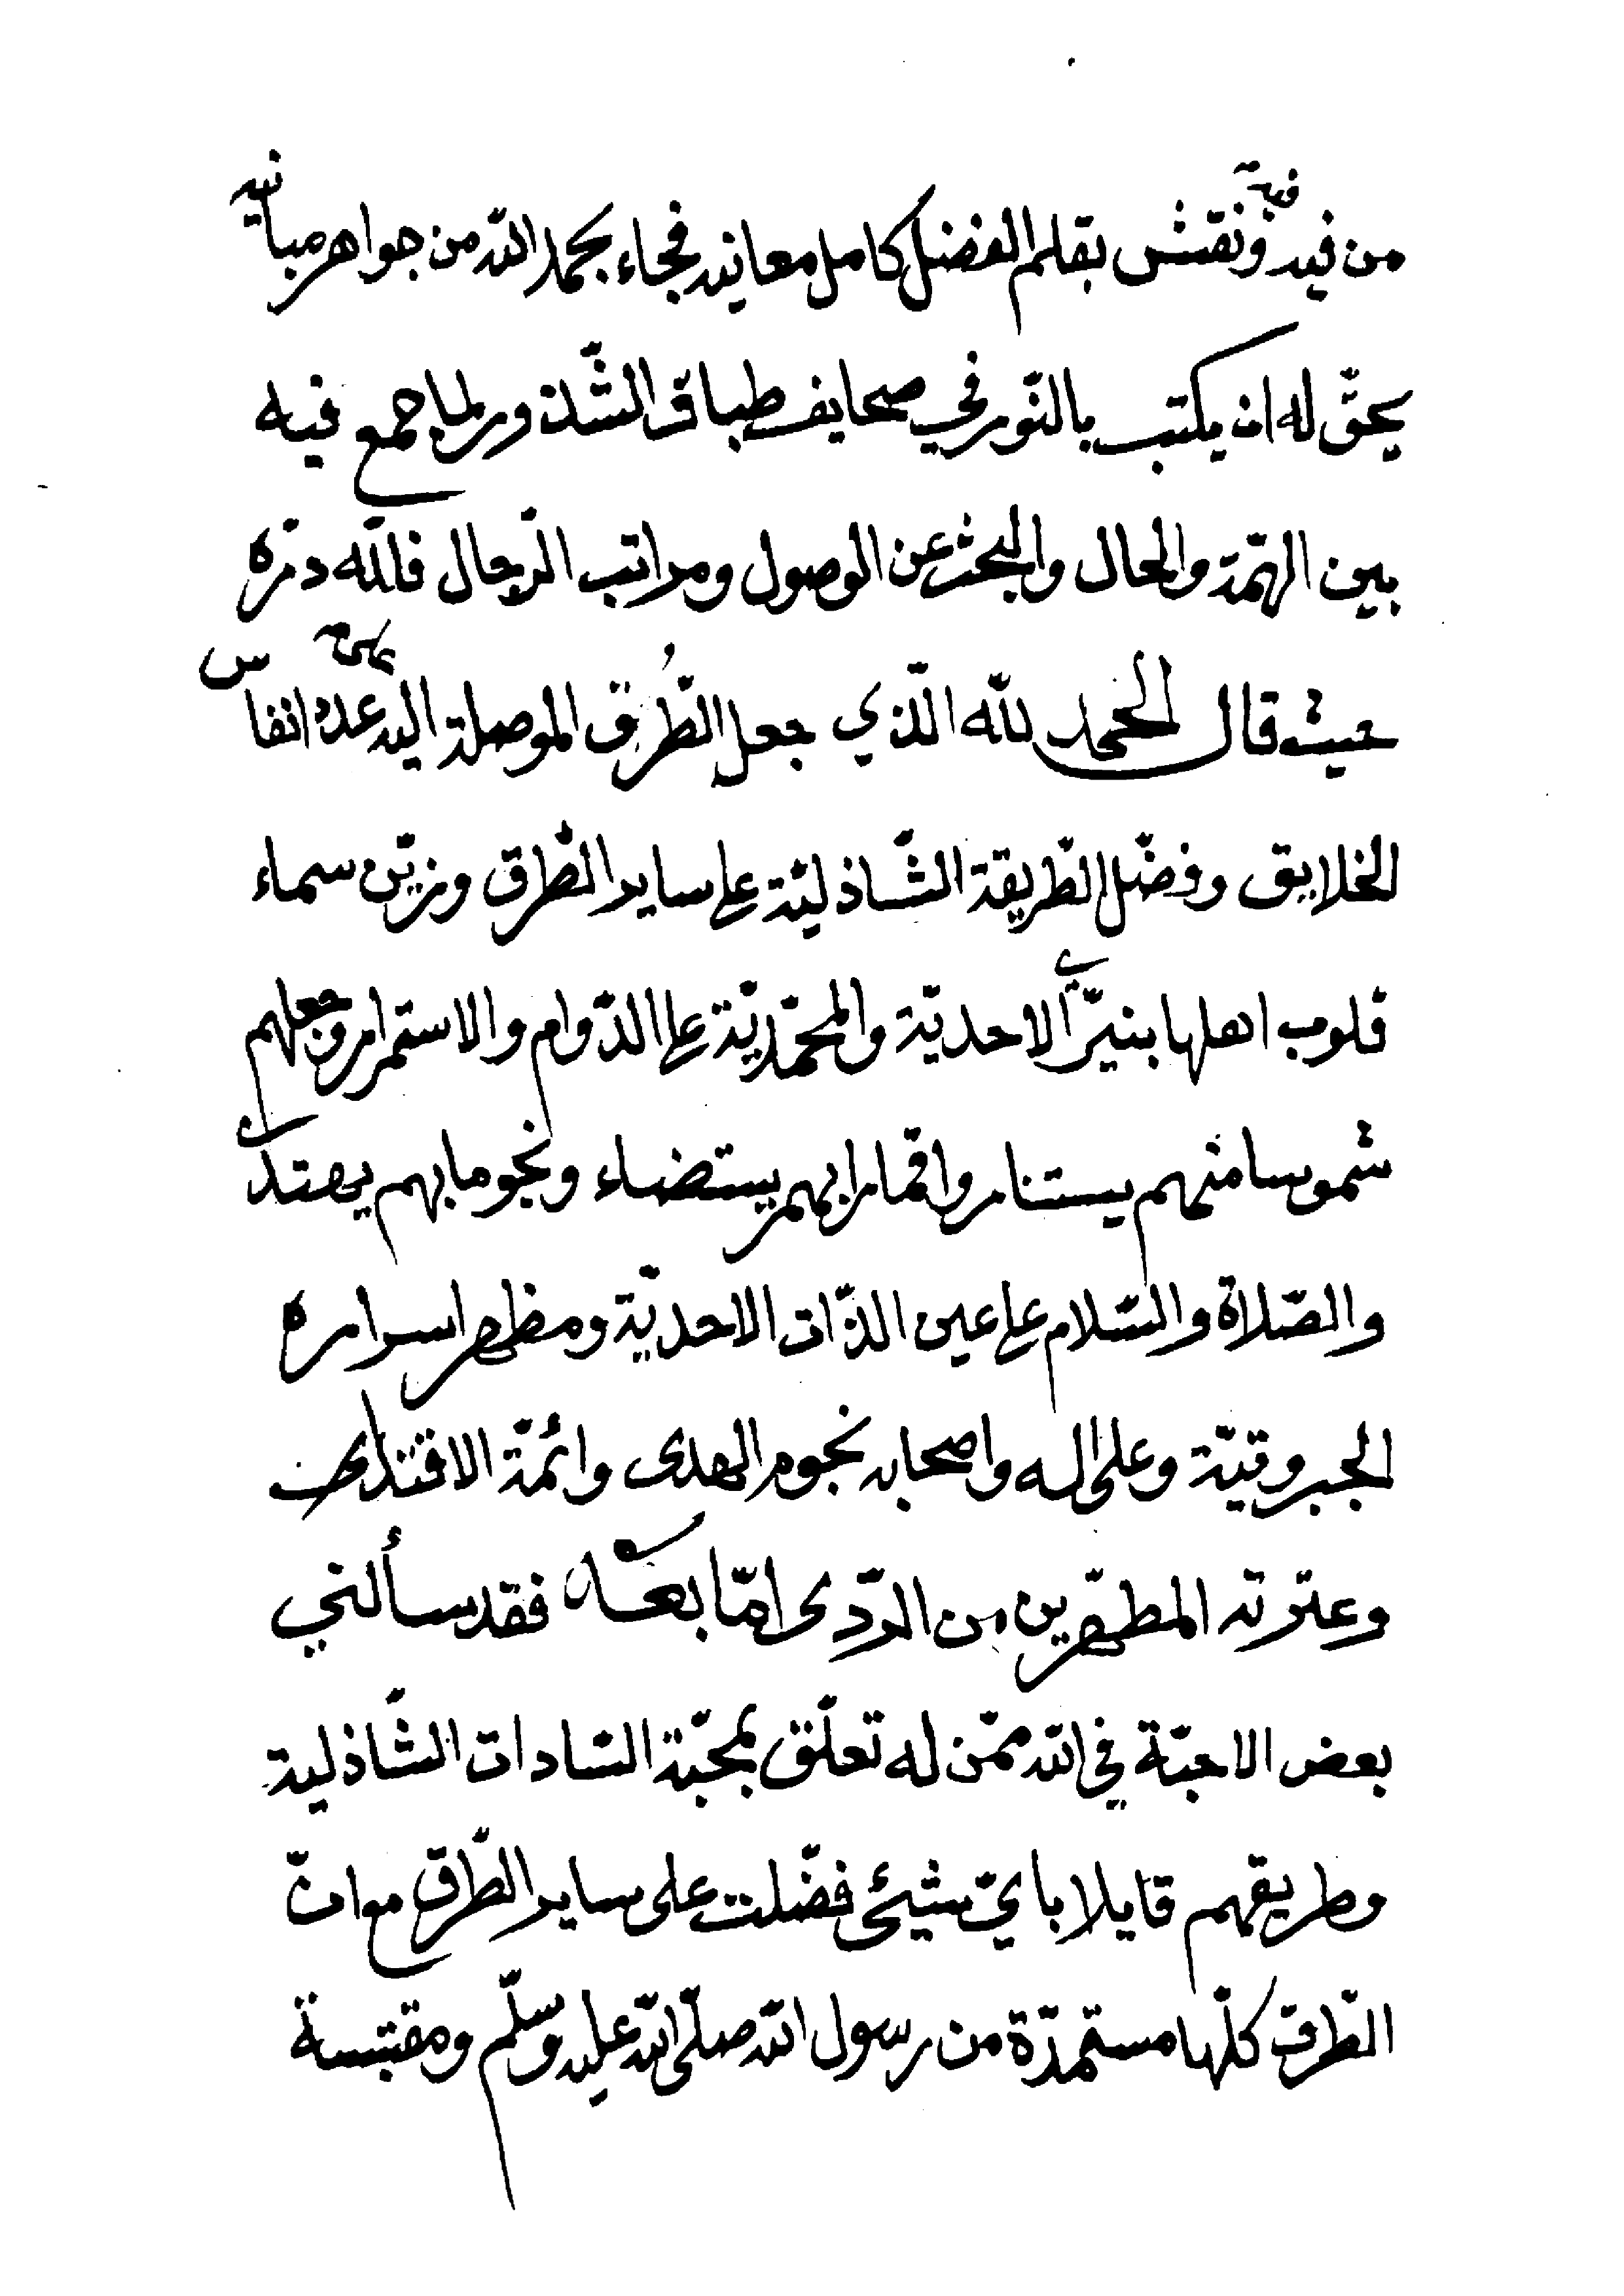 من فيه ونقش بقلم الفضل كامل معانيه فجاء بحمد الله من جواهر مبانيه
يحق له ان يكتب بالنور في صحايف طباق الشذور لما جمع فيه
بين الهمّة والحال والبحث عن الوصول ومراتب الرّجال فللّه درّه
حيث قال الحمد لله الّذي جعل الطُّرق الموصلة اليه على عدد انفاس
الخلايق وفضّل الطّريقة الشّاذليّة على ساير الطّرق وزيّن سماء
قلوب اهلها بنيّري الاحديّة والمحمّديّة على الدّوام والاستمرار وجعلهم
شموسا منهم يستنار واقمارا بهم يستضاء ونجوما بهم يهتدى
والصّلاة والسّلام على عين الذّات الاحديّة ومظهر اسراره
الجبروتيّة وعلى اله واصحابه نجوم الهدى وائمّة الاقتدى
وعترته المطهّرين من الرّدى امّا بعد فقد سألني
بعض الاحبّة في الله ممّن له تعلّق بمحبّة السّادات الشّاذلية
وطريقهم قايلا بايّ شيئ فضّلت على ساير الطّرق مع انّ
الطّرق كلّها مستمدّة من رسول الله صلّى الله عليه وسلّم ومقتبسة